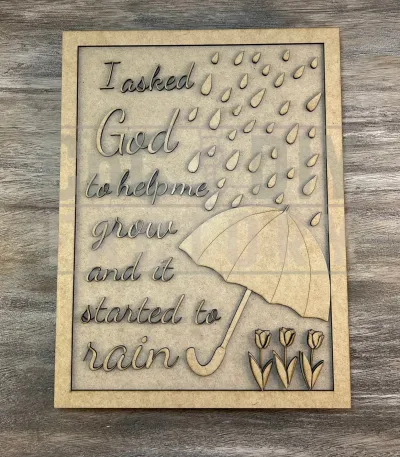 I asked
God
to help me
grow
and it
started to
rain